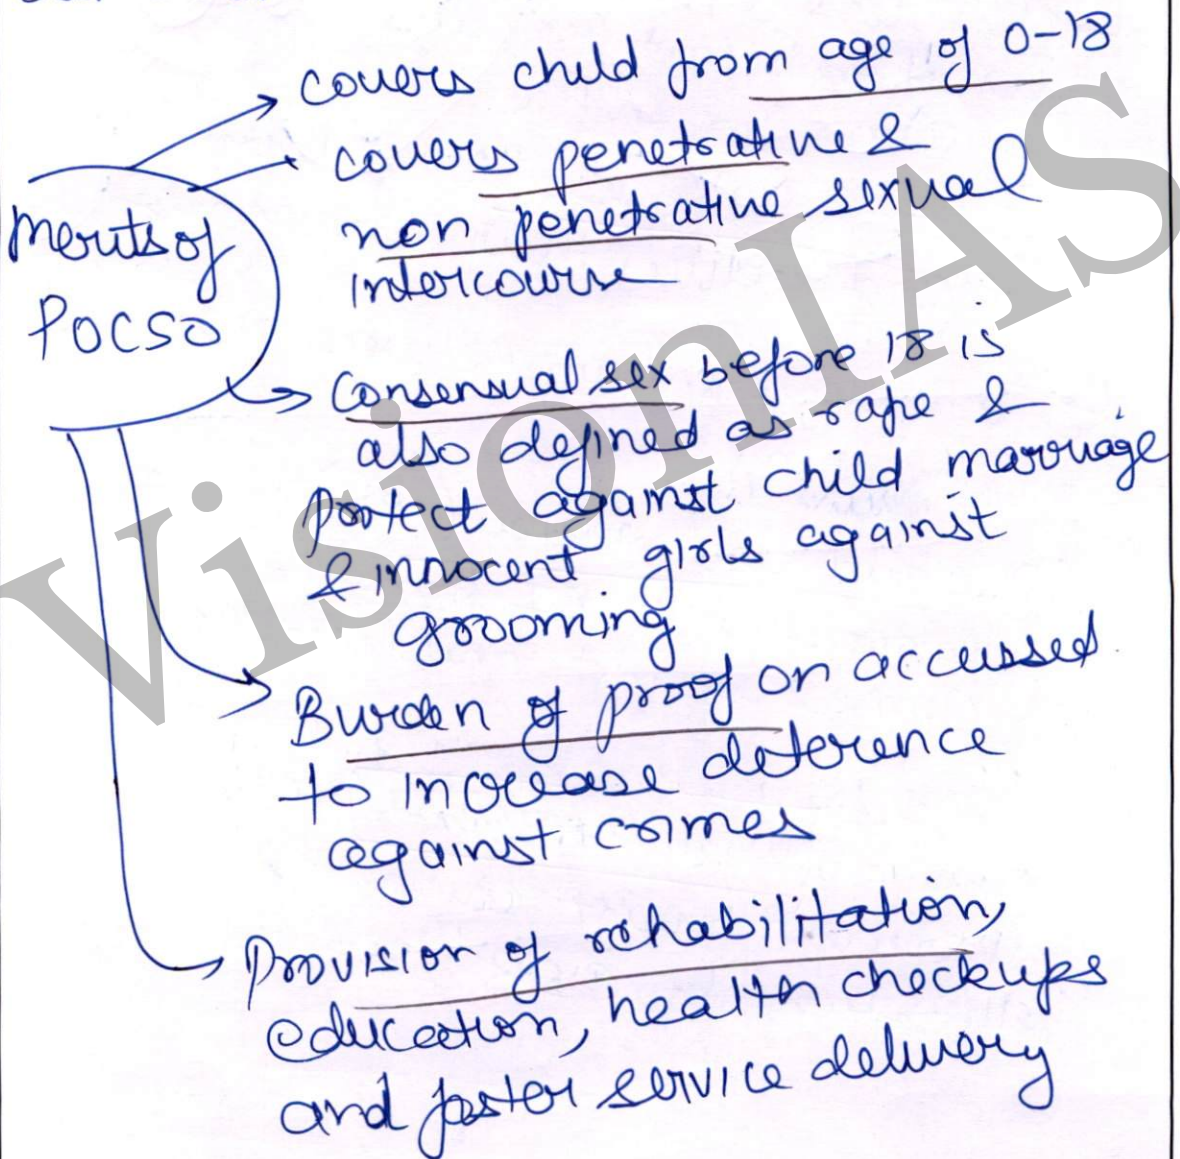 covers child from age of 0-18
covers penetrative &
non penetrative sexual
intercourse
Merits of
POCSO
Consensual sex before 18 is
also defined as rape &
protect against child marriage
& innocent girls against
grooming
Burden of proof on accussed
to increase deterence
against crimes
Provision of rehabilitation,
education, health checkups
and faster service delivery
VisionIAS